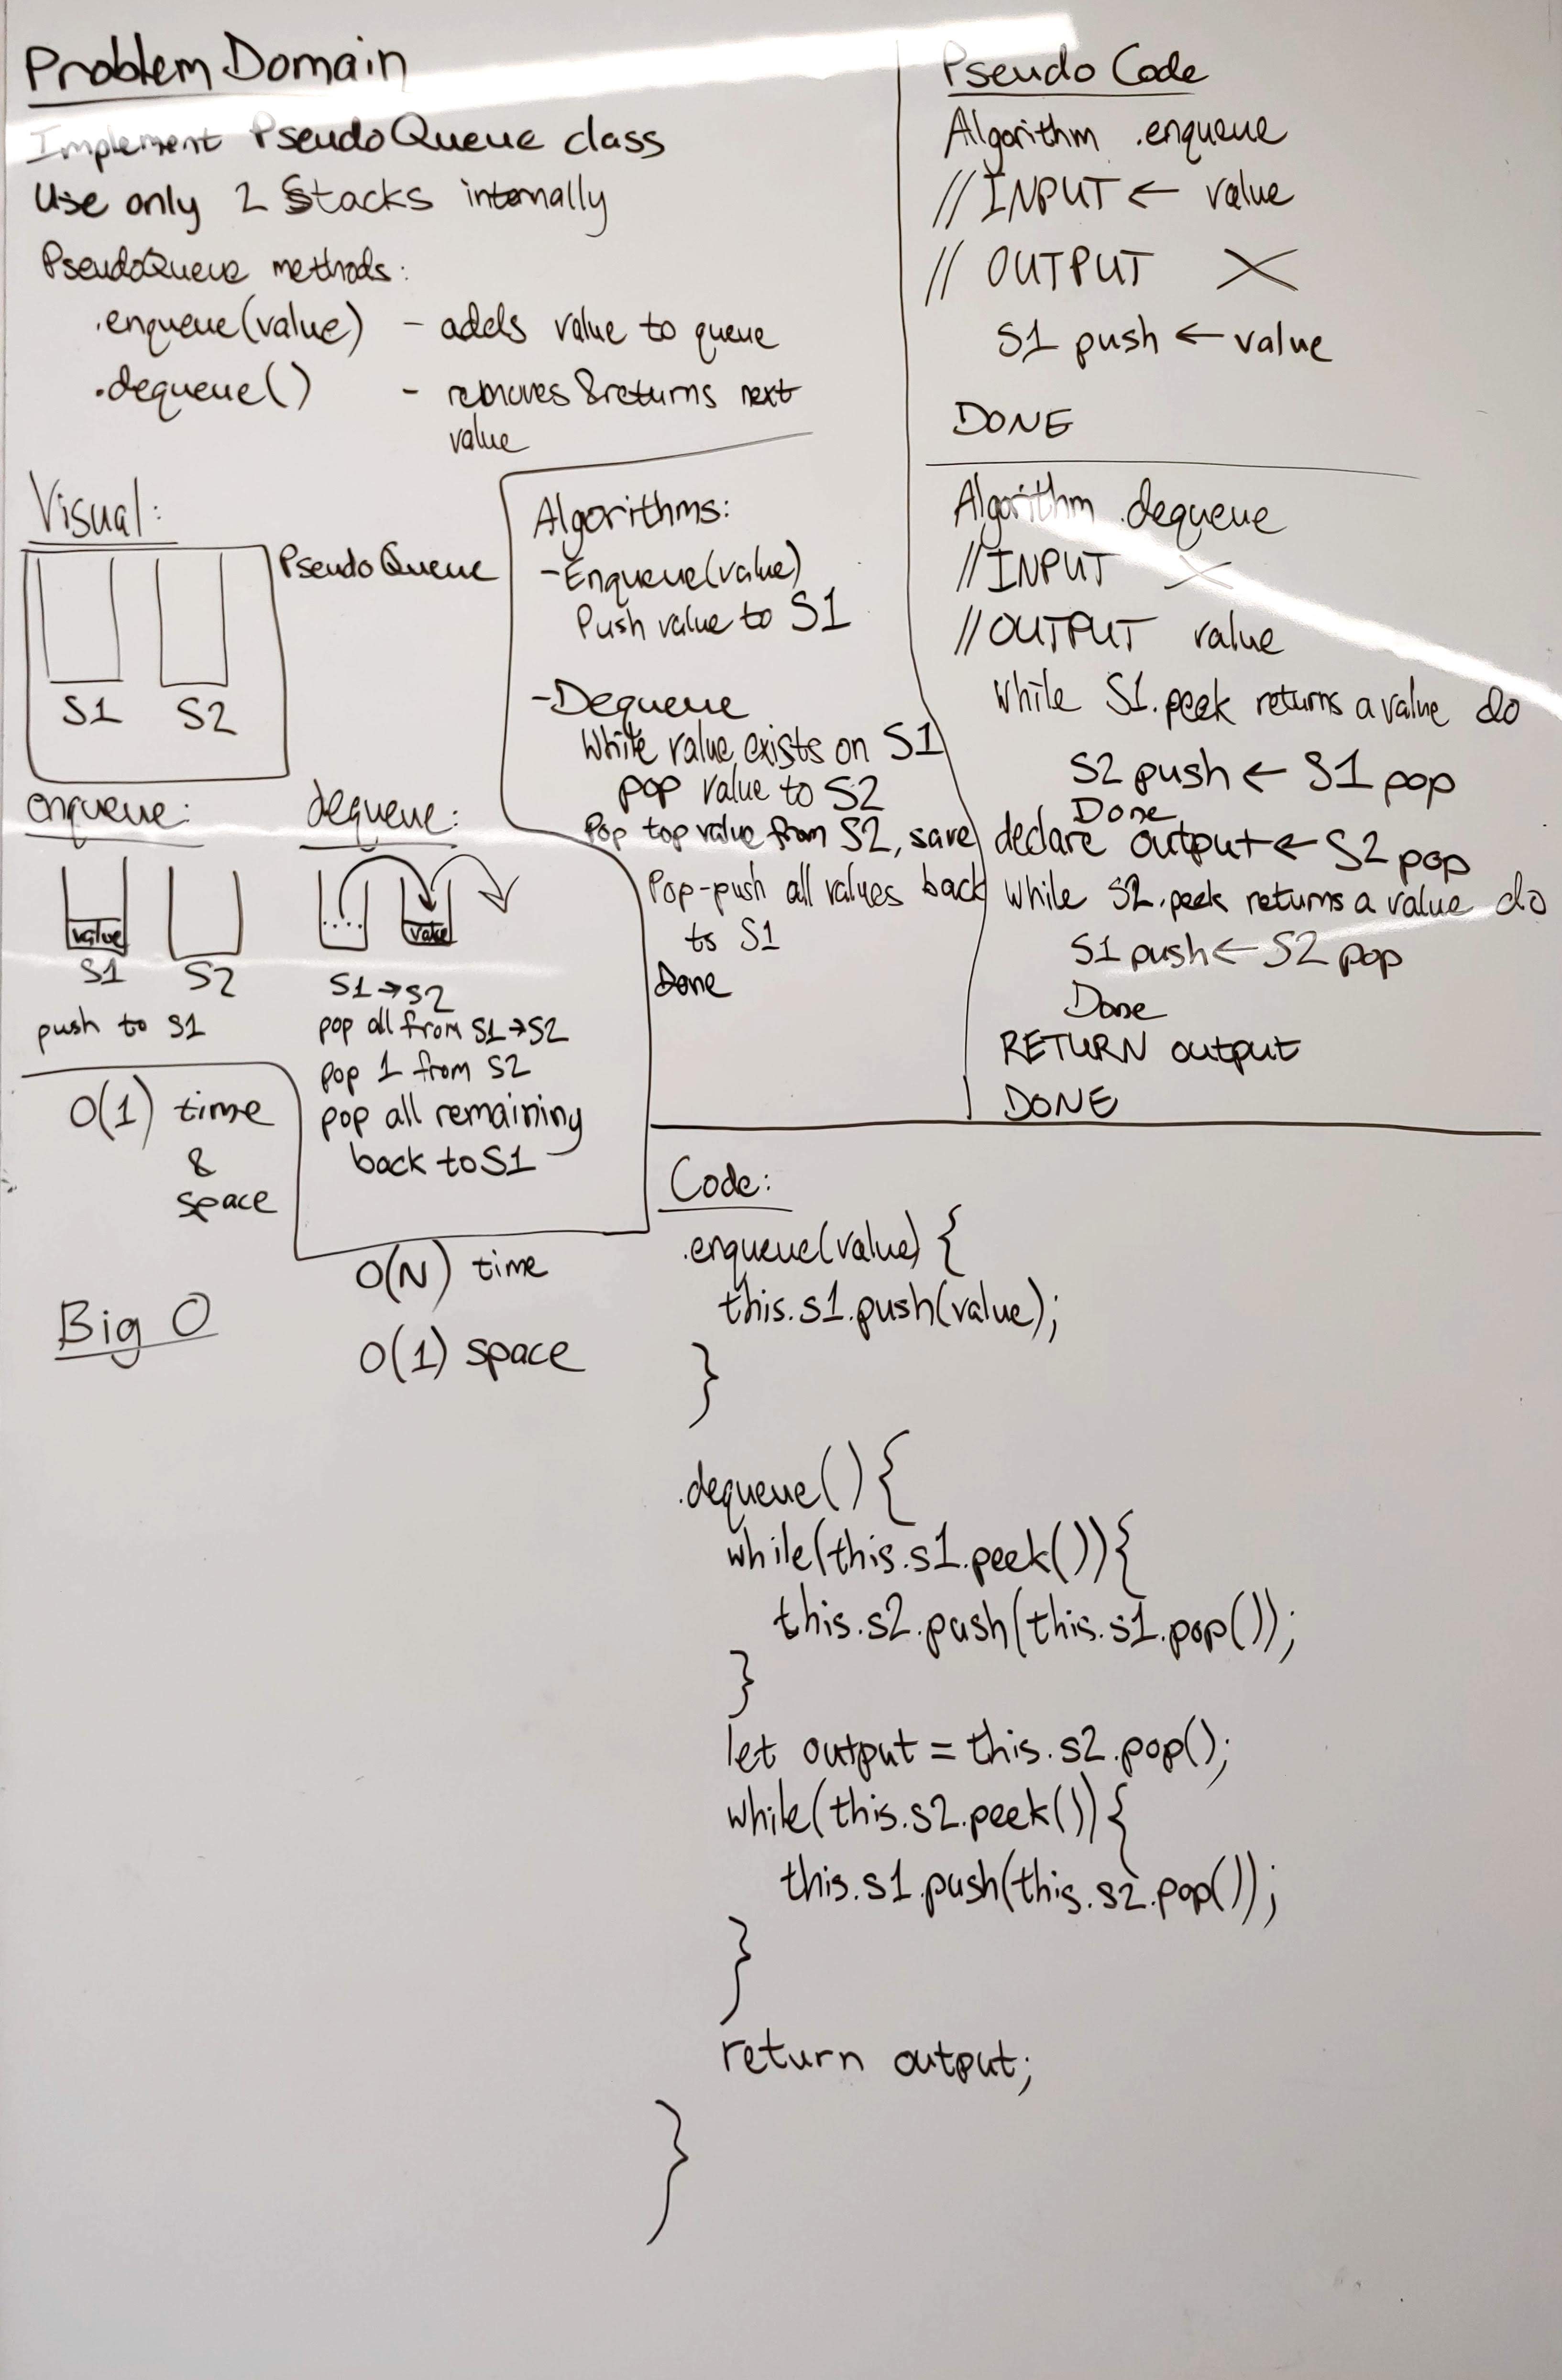 Problem Domain
Implement PseudoQueue class
Use only 2 Stacks internally
PseudoQueue methods:
.enqueue(value) - adds value to queue
.dequeue() - removes & returns next
value
Visual:
PseudoQueue
S1 S2
enqueue:
value
S1 S2
push to S1
O(1) time
&
space
dequeue:
....
value
S1→S2
pop all from S1→S2
pop 1 from S2
pop all remaining
back to S1
O(N) time
O(1) space
Big O
Algorithms:
-Enqueue(value)
Push value to S1
-Dequeue
While value exists on S1
pop value to S2
Pop top value from S2, save
Pop-push all values back
to S1
Done
Pseudo Code
Algorithm .enqueue
//INPUT ← value
// OUTPUT X
S1 push ← value
DONE
Algorithm .dequeue
//INPUT X
//OUTPUT value
While S1.peek returns a value do
S2 push ← S1 pop
Done
declare output ← S2 pop
While S2.peek returns a value do
S1 push ← S2 pop
Done
RETURN output
DONE
Code:
.enqueue(value) {
this.s1.push(value);
}
.dequeue() {
while(this.s1.peek()){
this.s2.push(this.s1.pop());
}
let output = this.s2.pop();
while(this.s2.peek()){
this.s1.push(this.s2.pop());
}
return output;
}